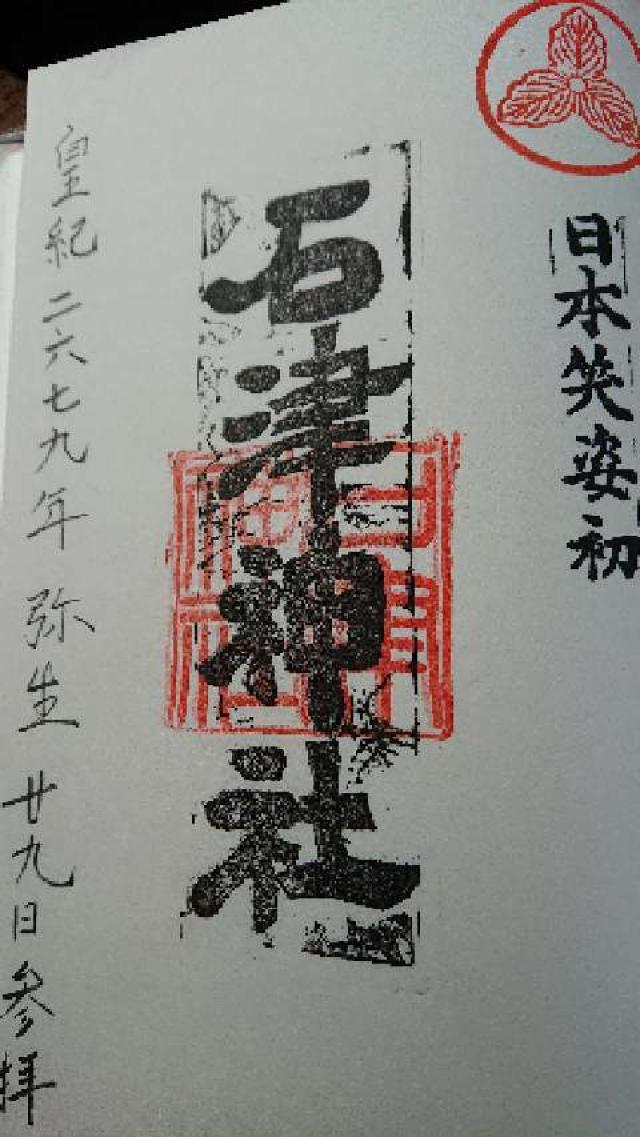 日本笑姿初
石津神社
皇紀二六七九年弥生廿九日参拝